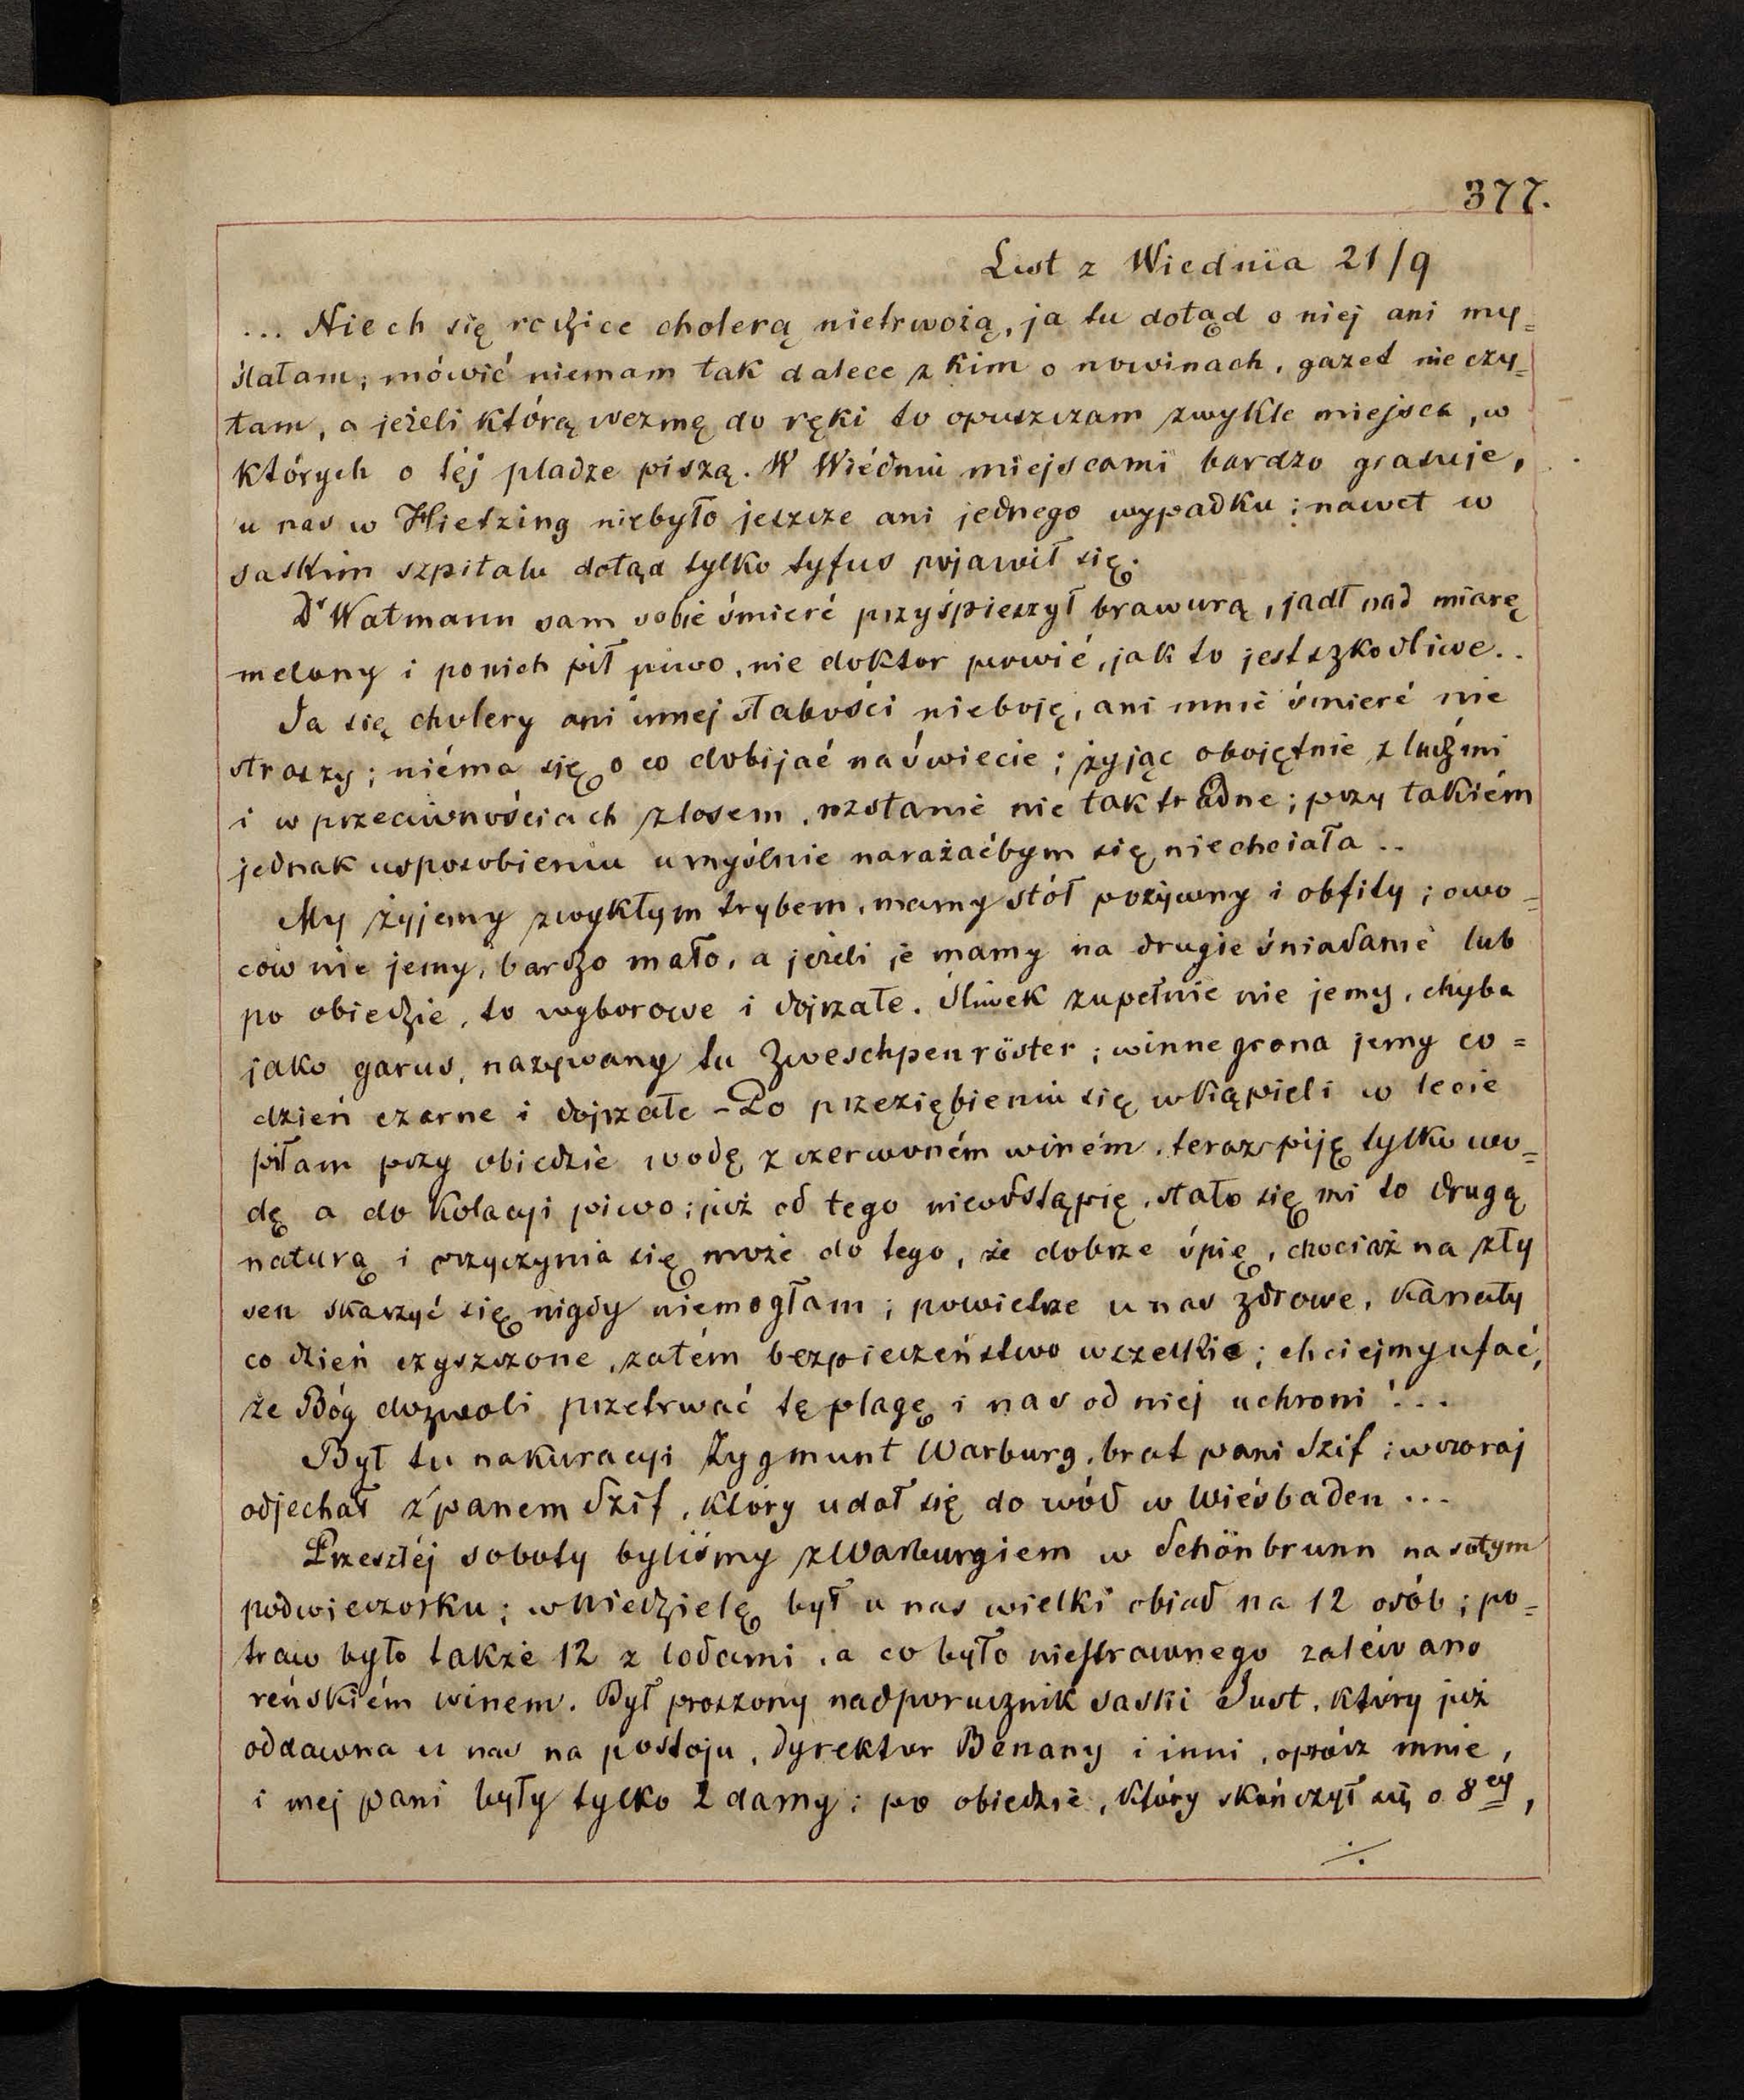 377.
List z Wiednia 21/9
... Niech się rodzice cholerą nietrwożą, ja tu dotąd o niej ani my=
ślałam; mówić niemam tak dalece z kim o nowinach, gazet nie czy=
tam, a jeżeli którą wezmę do ręki to opuszczam zwykle miejsca, w
których o téj pladze piszą. W Wiédniu miejscami bardzo grasuje,
u nas w Hietzing niebyło jeszcze ani jednego wypadku; nawet w
saskim szpitalu dotąd tylko tyfus pojawił się.
Dr Watmann sam sobie śmierć przyśpieszył brawurą, jadł nad miarę
melony i ponich pił piwo, nie doktor powié, jak to jest szkodliwe..
Ja się cholery ani innej słabości nieboję, ani mnie śmierć nie
straszy; niéma się o co dobijać na świecie; żyjąc obojętnie z ludźmi
i w przeciwnościach z losem, rozstanie nie tak trudne; przy takiém
jednak usposobieniu umyślnie narażaćbym się niechciała..
My żyjemy zwykłym trybem, mamy stół pożywny i obfity; owo=
ców nie jemy, bardzo mało, a jeżeli je mamy na drugie śniadanie lub
po obiedzie, to wyborowe i dojrzałe. Śliwek zupełnie nie jemy, chyba
jako garus, nazywany tu Zweschpenröster; winne grona jemy co=
dzień czarne i dojrzałe - Po przeziębieniu się w kąpieli w lecie
piłam przy obiedzie wodę z czerwoném winém, teraz piję tylko wo=
dę a do kolacyi piwo; już od tego nieodstąpię, stało się mi to drugą
naturą i przyczynia się może do tego, że dobrze śpię, chociaż na zły
sen skarzyć się nigdy niemogłam; powietrze u nas zdrowe, kanały
co dzień czyszczone, zatém bezpieczeństwo wszelkie; chciejmy ufać,
że Bóg dozwoli przetrwać tę plagę i nas od niej uchroni!...
Był tu nakuracyi Zygmunt Warburg, brat pani Szif; wczoraj
odjechał z panem Szif, który udał się do wód w Wiésbaden...
Przeszłéj soboty byliśmy z Warburgiem w Schönbrunn na sutym
podwieczorku; w niedzielę był u nas wielki obiad na 12 osób; po=
traw było także 12 z lodami, a co było niestrawnego zaléwano
reńskiém winem. Był proszony nadporucznik saski Just, który już
oddawna u nas na postoju, dyrektor Benany i inni, oprócz mnie,
i mej pani były tylko 2 damy; po obiedzie, który skończył się o 8ej,
./.